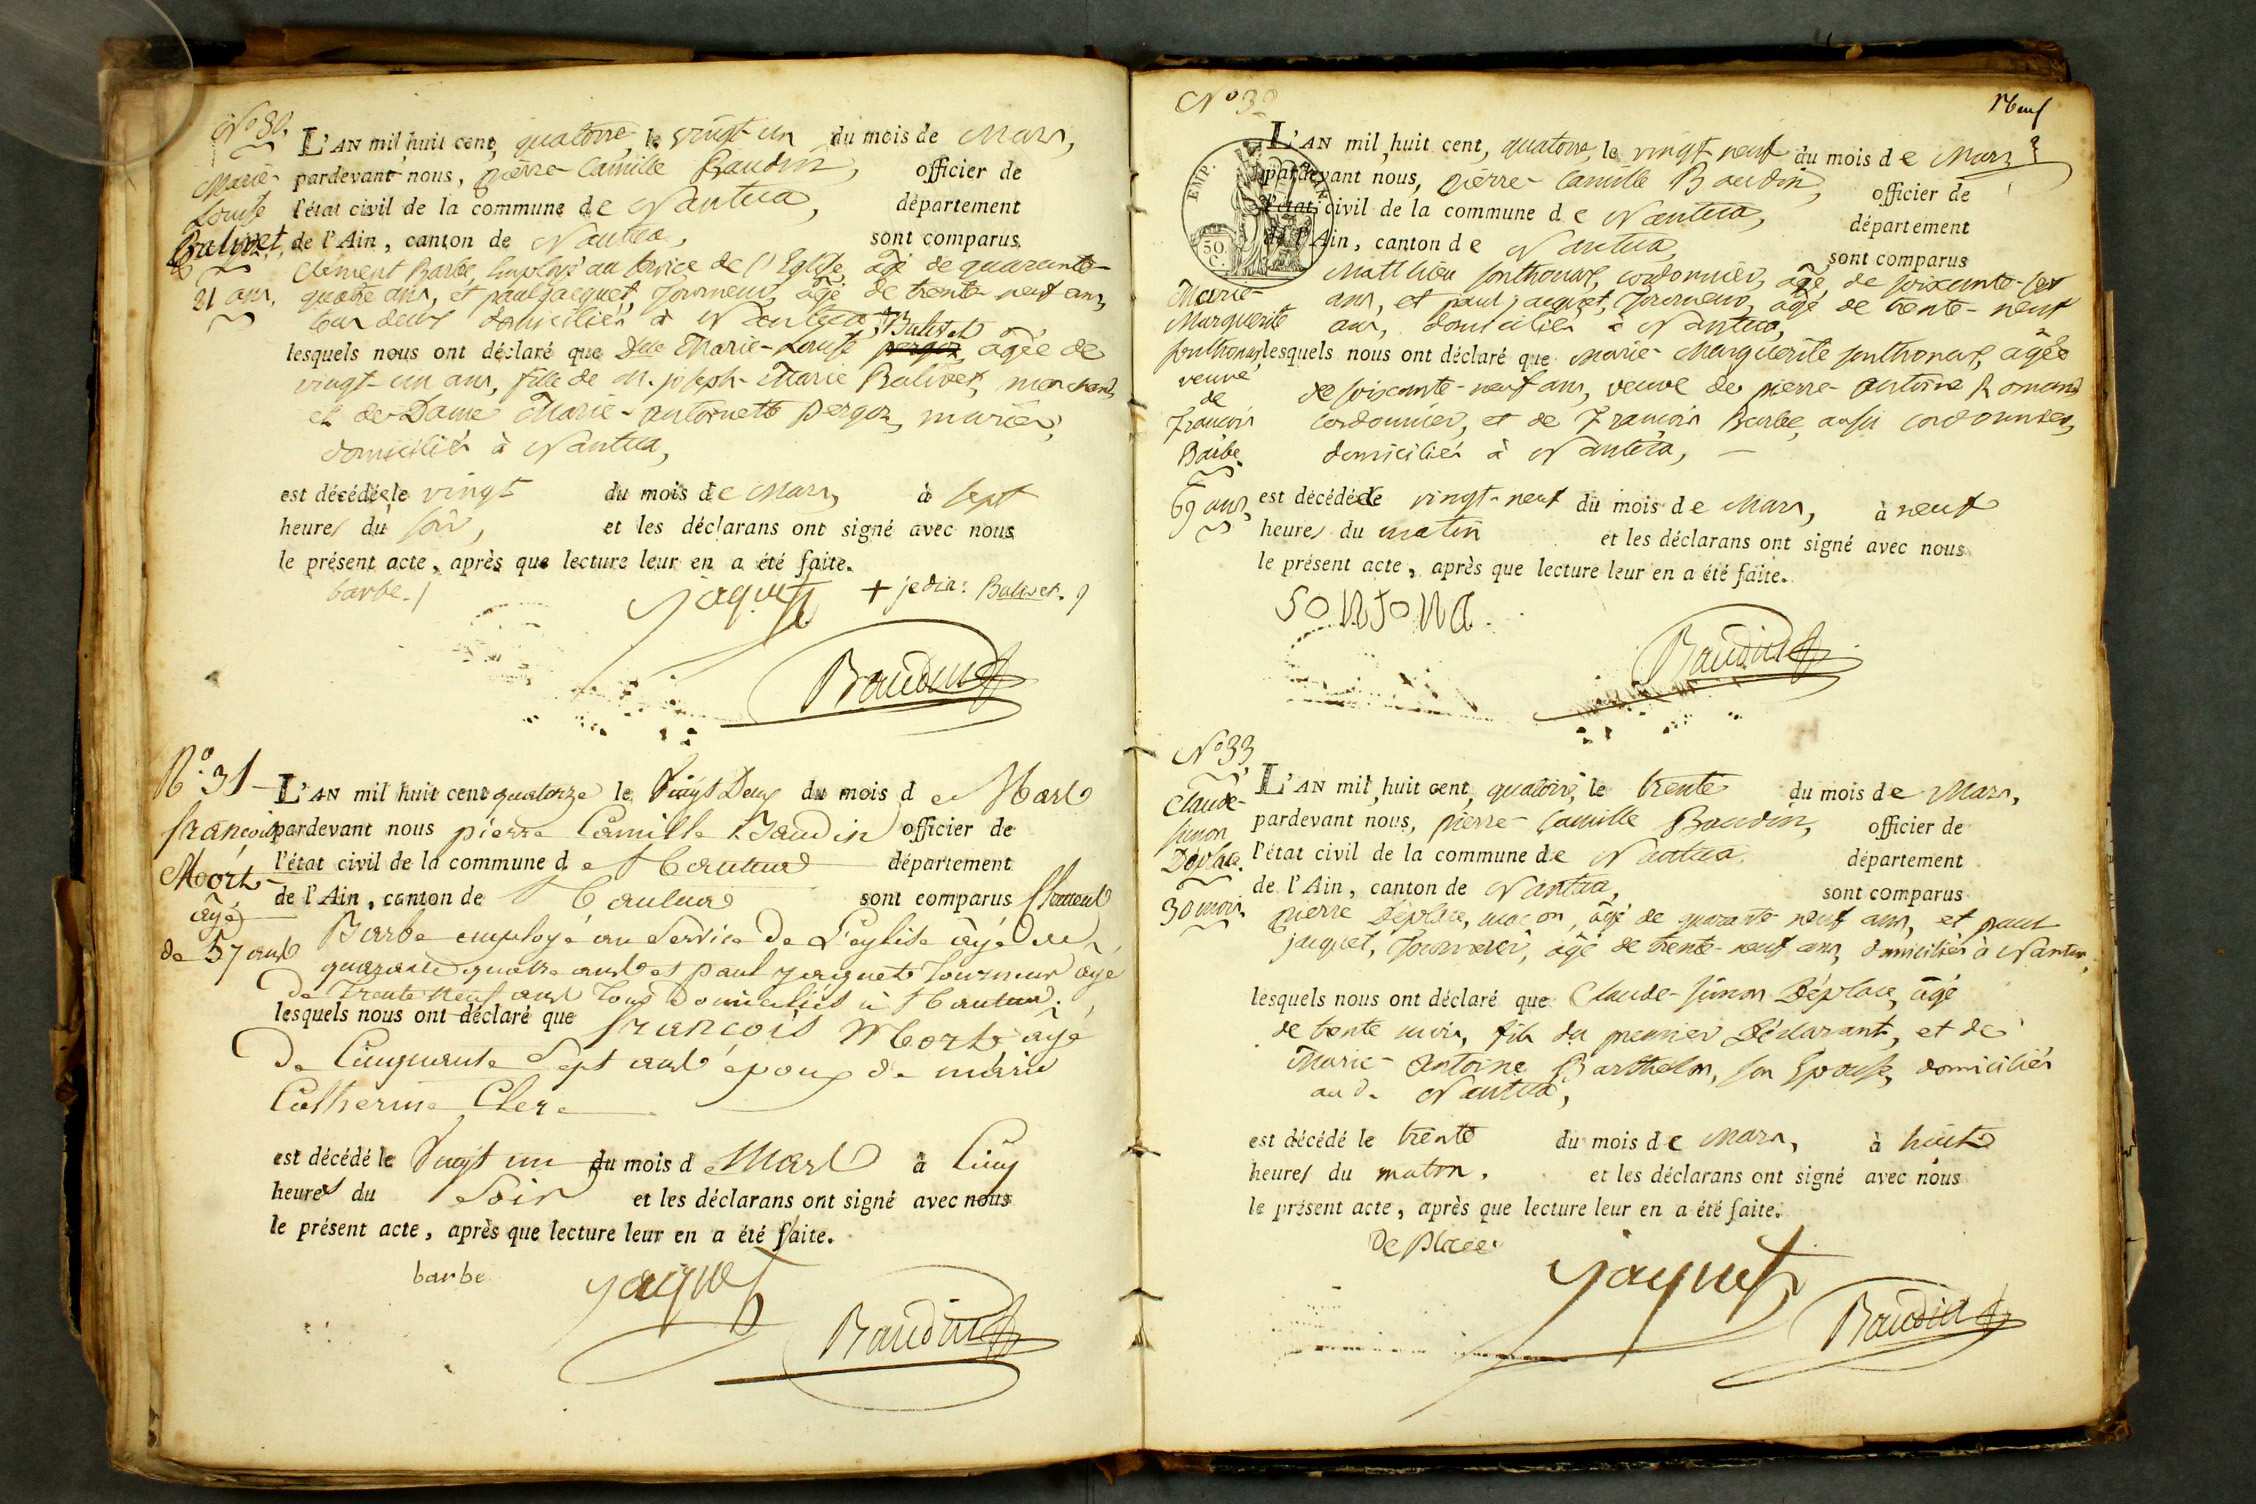 N° 30.
Marie-
Louise
Balivet.
21 ans.
L'AN mil huit cent, quatorze, le vingt-un du mois de Mars,
pardevant nous, pierre-Camille Baudin, officier de
l'état civil de la commune de Nantua, département
de l'Ain, canton de Nantua, sont comparus
Clément Barbe, Employé au service de l'Eglise, âgé de quarante-
quatre ans, et paul jacquet, Tourneur, âgé de trente-neuf ans,
tous deux domiciliés à Nantua,
+ Balivet
lesquels nous ont déclaré que Dlle Marie-Louise pergoz, âgée de
vingt-un ans, fille de M. joseph-Marie Balivet, marchand,
et de Dame Marie-antoinette pergoz, mariés,
domiciliés à Nantua,
est décédée le vingt du mois de Mars, à sept
heures du soir, et les déclarans ont signé avec nous
le présent acte, après que lecture leur en a été faite.
barbe. jaquet + je dis: Balivet.
Baudin
N° 31
françois
Mort
âgé
de 57 ans
L'AN mil huit cent quatorze le Vingt Deux du mois de Mars
pardevant nous pierre Camille Baudin officier de
l'état civil de la commune de Nantua département
de l'Ain, canton de Nantua sont comparus Clement
Barbe employé au Service de L'eglise âgé de
quarante quatre ans et paul jacquet Tourneur âgé
De Trente Neuf ans Tous Domiciliés à Nantua.
lesquels nous ont déclaré que françois Mort âgé
De Cinquante Sept ans époux de marie
Catherine Clerc
est décédé le Vingt un du mois de Mars à Cinq
heures du Soir et les déclarans ont signé avec nous
le présent acte, après que lecture leur en a été faite.
barbe jaquet
Baudin
N° 32
Neuf
EMP.
50 C.
Marie-
Marguerite
sonthonax,
veuve
de
françois
Barbe.
69 ans,
L'AN mil huit cent, quatorze, le vingt neuf du mois de Mars
pardevant nous, pierre-Camille Baudin, officier de
l'état civil de la commune de Nantua, département
de l'Ain, canton de Nantua, sont comparus
Matthieu sonthonax, cordonnier, âgé de soixante-sept
ans, et paul jacquet, Tourneur, âgé de trente-neuf
ans, domiciliés à Nantua,
lesquels nous ont déclaré que Marie-Marguerite sonthonax, âgée
de soixante-neuf ans, veuve de pierre-antoine Romand
cordonnier, et de françois Barbe, aussi cordonnier,
domiciliés à Nantua,
est décédée le vingt-neuf du mois de Mars, à neuf
heures du matin et les déclarans ont signé avec nous
le présent acte, après que lecture leur en a été faite.
sontona.
Baudin
N° 33
Claude-
simon
Déplace.
30 mois.
L'AN mil huit cent, quatorze, le trente du mois de Mars,
pardevant nous, pierre-Camille Baudin, officier de
l'état civil de la commune de Nantua. département
de l'Ain, canton de Nantua, sont comparus
pierre Déplace, maçon, âgé de quarante-neuf ans, et paul
jacquet, Tourneur, âgé de trente-neuf ans, domiciliés à Nantua,
lesquels nous ont déclaré que Claude-simon Déplace, âgé
de trente mois, fils du premier Déclarant, et de
Marie-Antoine Barthelon, son Epouse, domiciliés
au d. Nantua,
est décédé le trente du mois de Mars, à huit
heures du matin. et les déclarans ont signé avec nous
le présent acte, après que lecture leur en a été faite.
De place. jaquet
Baudin